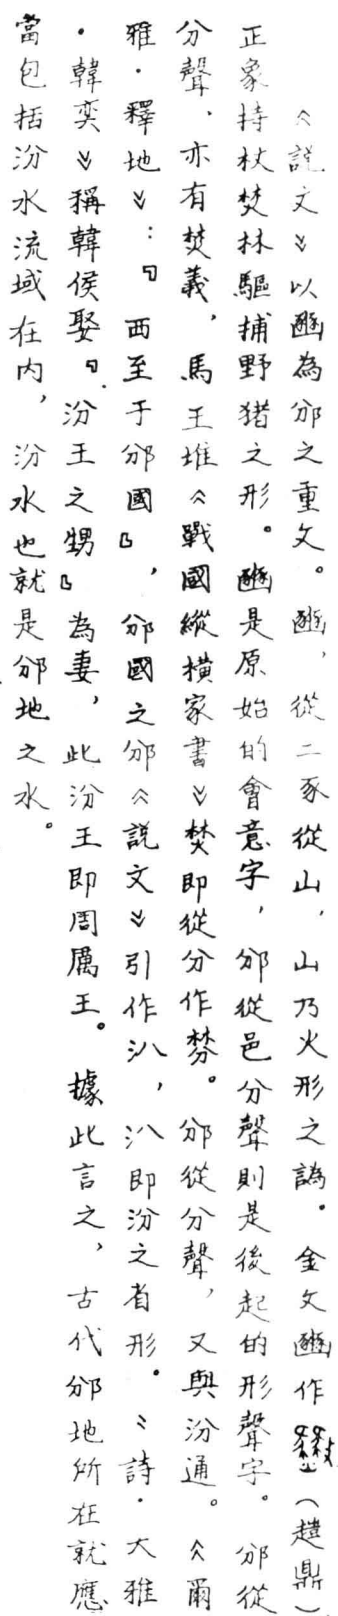 《說文》以豳為邠之重文。豳，從二豕從山，山乃火形之譌。金文豳作（趞鼎）
正象持杖焚林驅捕野猪之形。豳是原始的會意字，邠從邑分聲則是後起的形聲字。邠從
分聲、亦有焚義，馬王堆《戰國縱橫家書》焚即從分作棼。邠從分聲，又與汾通。《爾
雅·釋地》：『西至于邠國』，邠國之邠《說文》引作汃，汃即汾之省形。《詩·大雅
·韓奕》稱韓侯娶『汾王之甥』為妻，此汾王即周厲王。據此言之，古代邠地所在就應
當包括汾水流域在内，汾水也就是邠地之水。